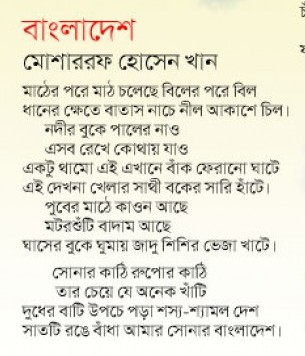 বাংলাদেশ
মোশাররফ হোসেন খান
মাঠের পরে মাঠ চলেছে বিলের পরে বিল
ধানের ক্ষেতে বাতাস নাচে নীল আকাশে চিল।
নদীর বুকে পালের নাও
এসব রেখে কোথায় যাও
একটু থামো এই এখানে বাঁক ফেরানো ঘাটে
এই দেখনা খেলার সাথী বকের সারি হাঁটে।
পুবের মাঠে কাওন আছে
মটরশুঁটি বাদাম আছে
ঘাসের বুকে ঘুমায় জাদু শিশির ভেজা খাটে।
সোনার কাঠি রুপোর কাঠি
তার চেয়ে যে অনেক খাঁটি
দুধের বাটি উপচে পড়া শস্য-শ্যামল দেশ
সাতটি রঙে বাঁধা আমার সোনার বাংলাদেশ।